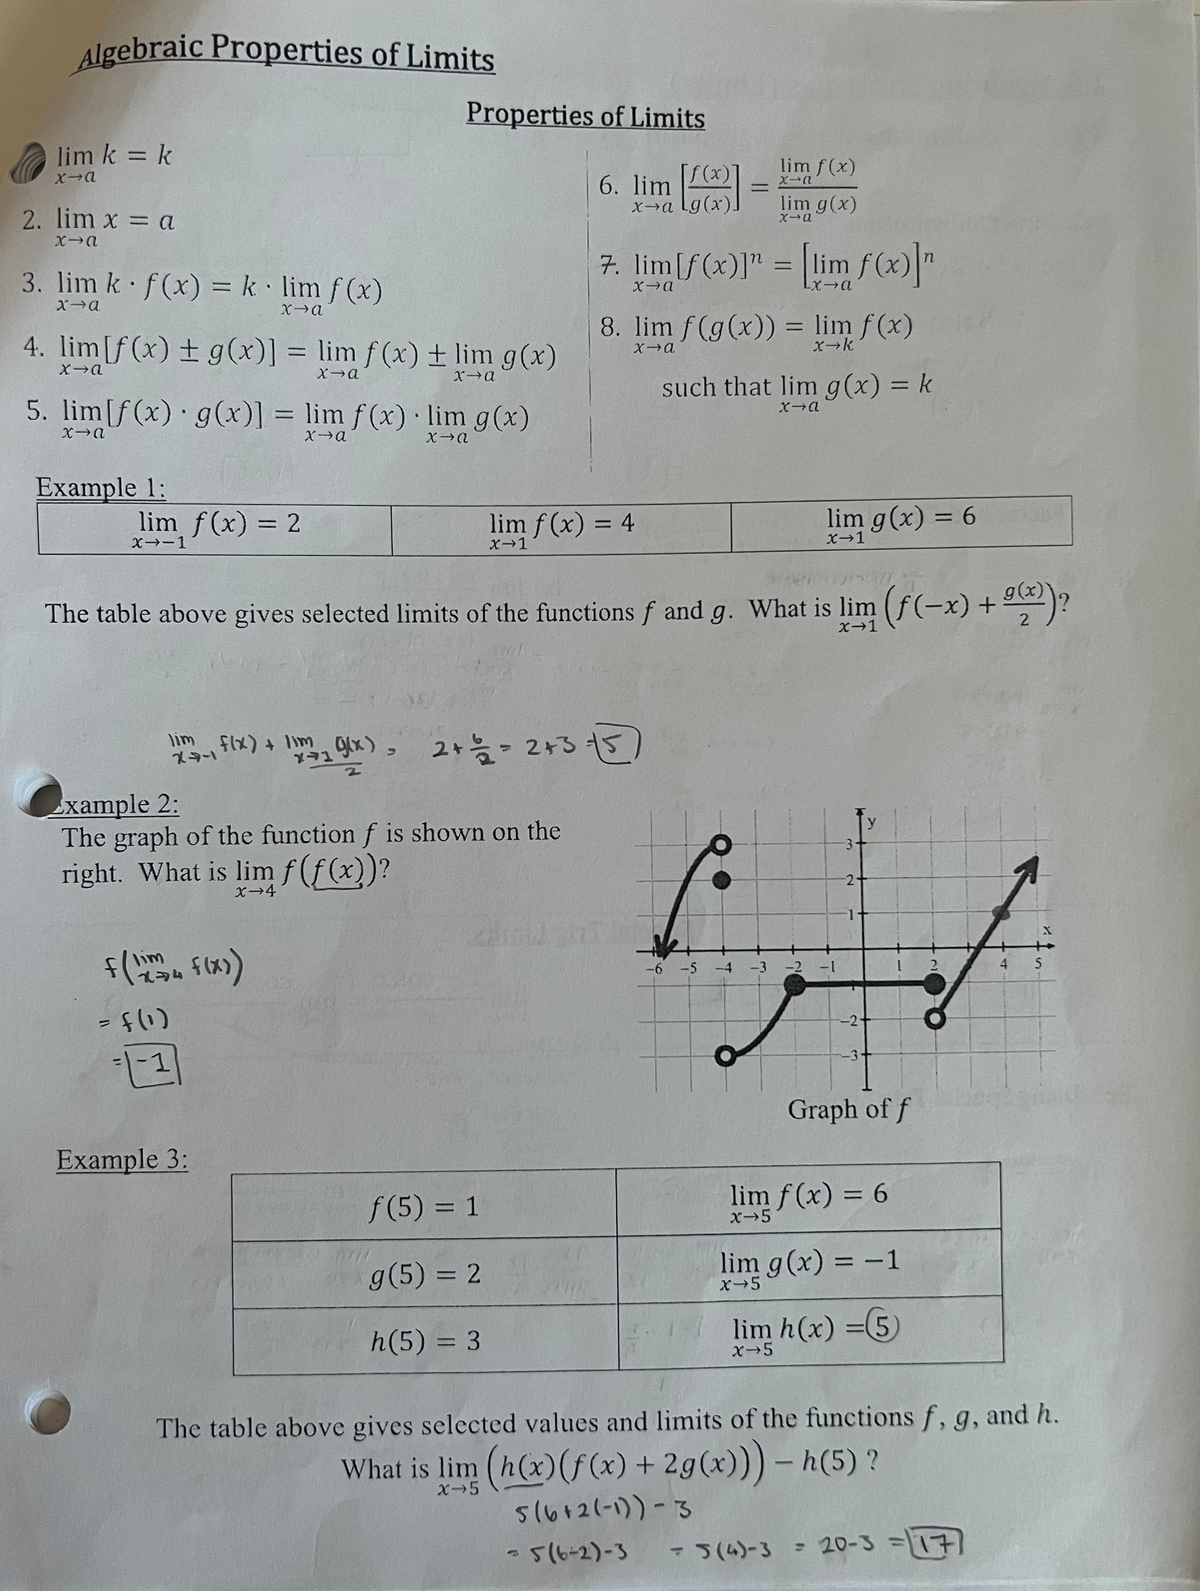 Algebraic Properties of Limits
Properties of Limits
lim k = k
x→a
2. lim x = a
x→a
3. lim k · f(x) = k · lim f(x)
x→a x→a
4. lim[f(x) ± g(x)] = lim f(x) ± lim g(x)
x→a x→a x→a
5. lim[f(x) · g(x)] = lim f(x) · lim g(x)
x→a x→a x→a
6. lim [f(x)/g(x)] = lim f(x) / lim g(x)
x→a x→a x→a
7. lim[f(x)]ⁿ = [lim f(x)]ⁿ
x→a x→a
8. lim f(g(x)) = lim f(x)
x→a x→k
such that lim g(x) = k
x→a
Example 1:
lim f(x) = 2 lim f(x) = 4 lim g(x) = 6
x→−1 x→1 x→1
The table above gives selected limits of the functions f and g. What is lim (f(−x) + g(x)/2)?
x→1
lim f(x) + lim g(x)/2 = 2+6/2 = 2+3 = 5
x→-1 x→1
Example 2:
The graph of the function f is shown on the
right. What is lim f(f(x))?
x→4
f(lim f(x))
x→4
= f(1)
= -1
y
3
2
1
x
−6 −5 −4 −3 −2 −1 1 2 4 5
−2
−3
Graph of f
Example 3:
f(5) = 1 lim f(x) = 6
x→5
g(5) = 2 lim g(x) = −1
x→5
h(5) = 3 lim h(x) = 5
x→5
The table above gives selected values and limits of the functions f, g, and h.
What is lim (h(x)(f(x) + 2g(x))) − h(5) ?
x→5
5(6+2(-1)) - 3
= 5(6-2)-3 = 5(4)-3 = 20-3 = 17